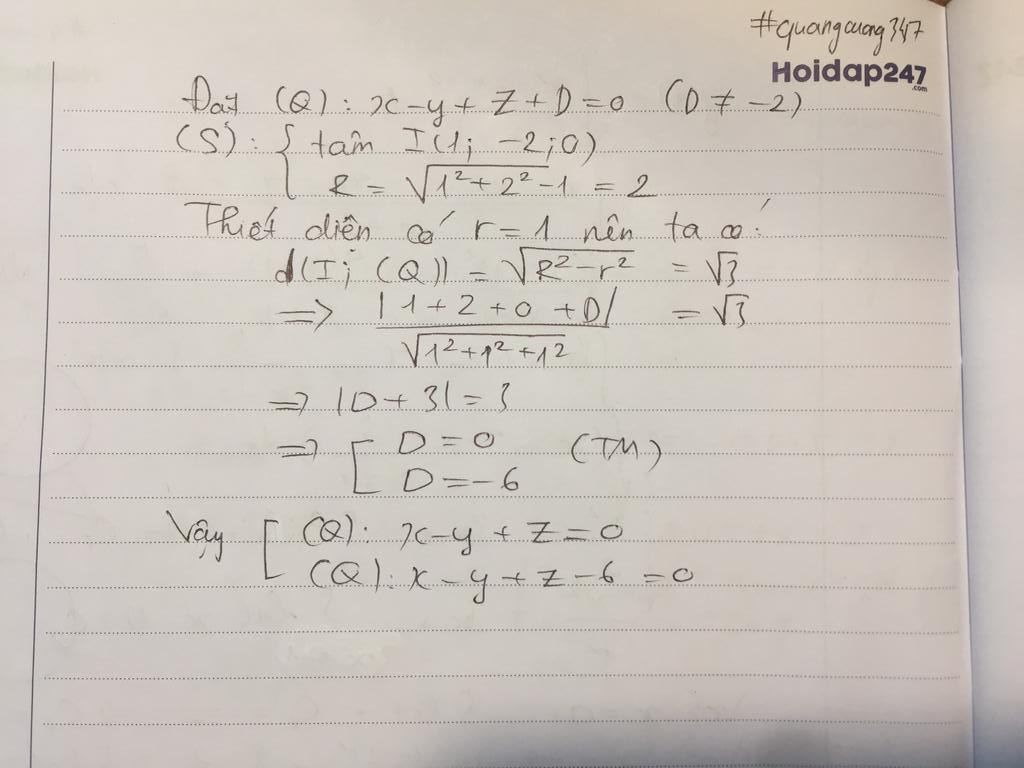 #quangcuong347
Hoidap247
.com
Đặt (Q): x-y+z+D=0 (D≠-2)
(S): { tâm I(1; -2;0)
R = √(1²+2²-1) = 2
Thiết diện có r=1 nên ta có:
d(I; (Q)) = √(R²-r²) = √3
=> |1+2+0+D| / √(1²+1²+1²) = √3
=> |D+3|=3
=> [ D=0 (TM)
D=-6
Vậy [ (Q): x-y+z=0
(Q): x-y+z-6=0